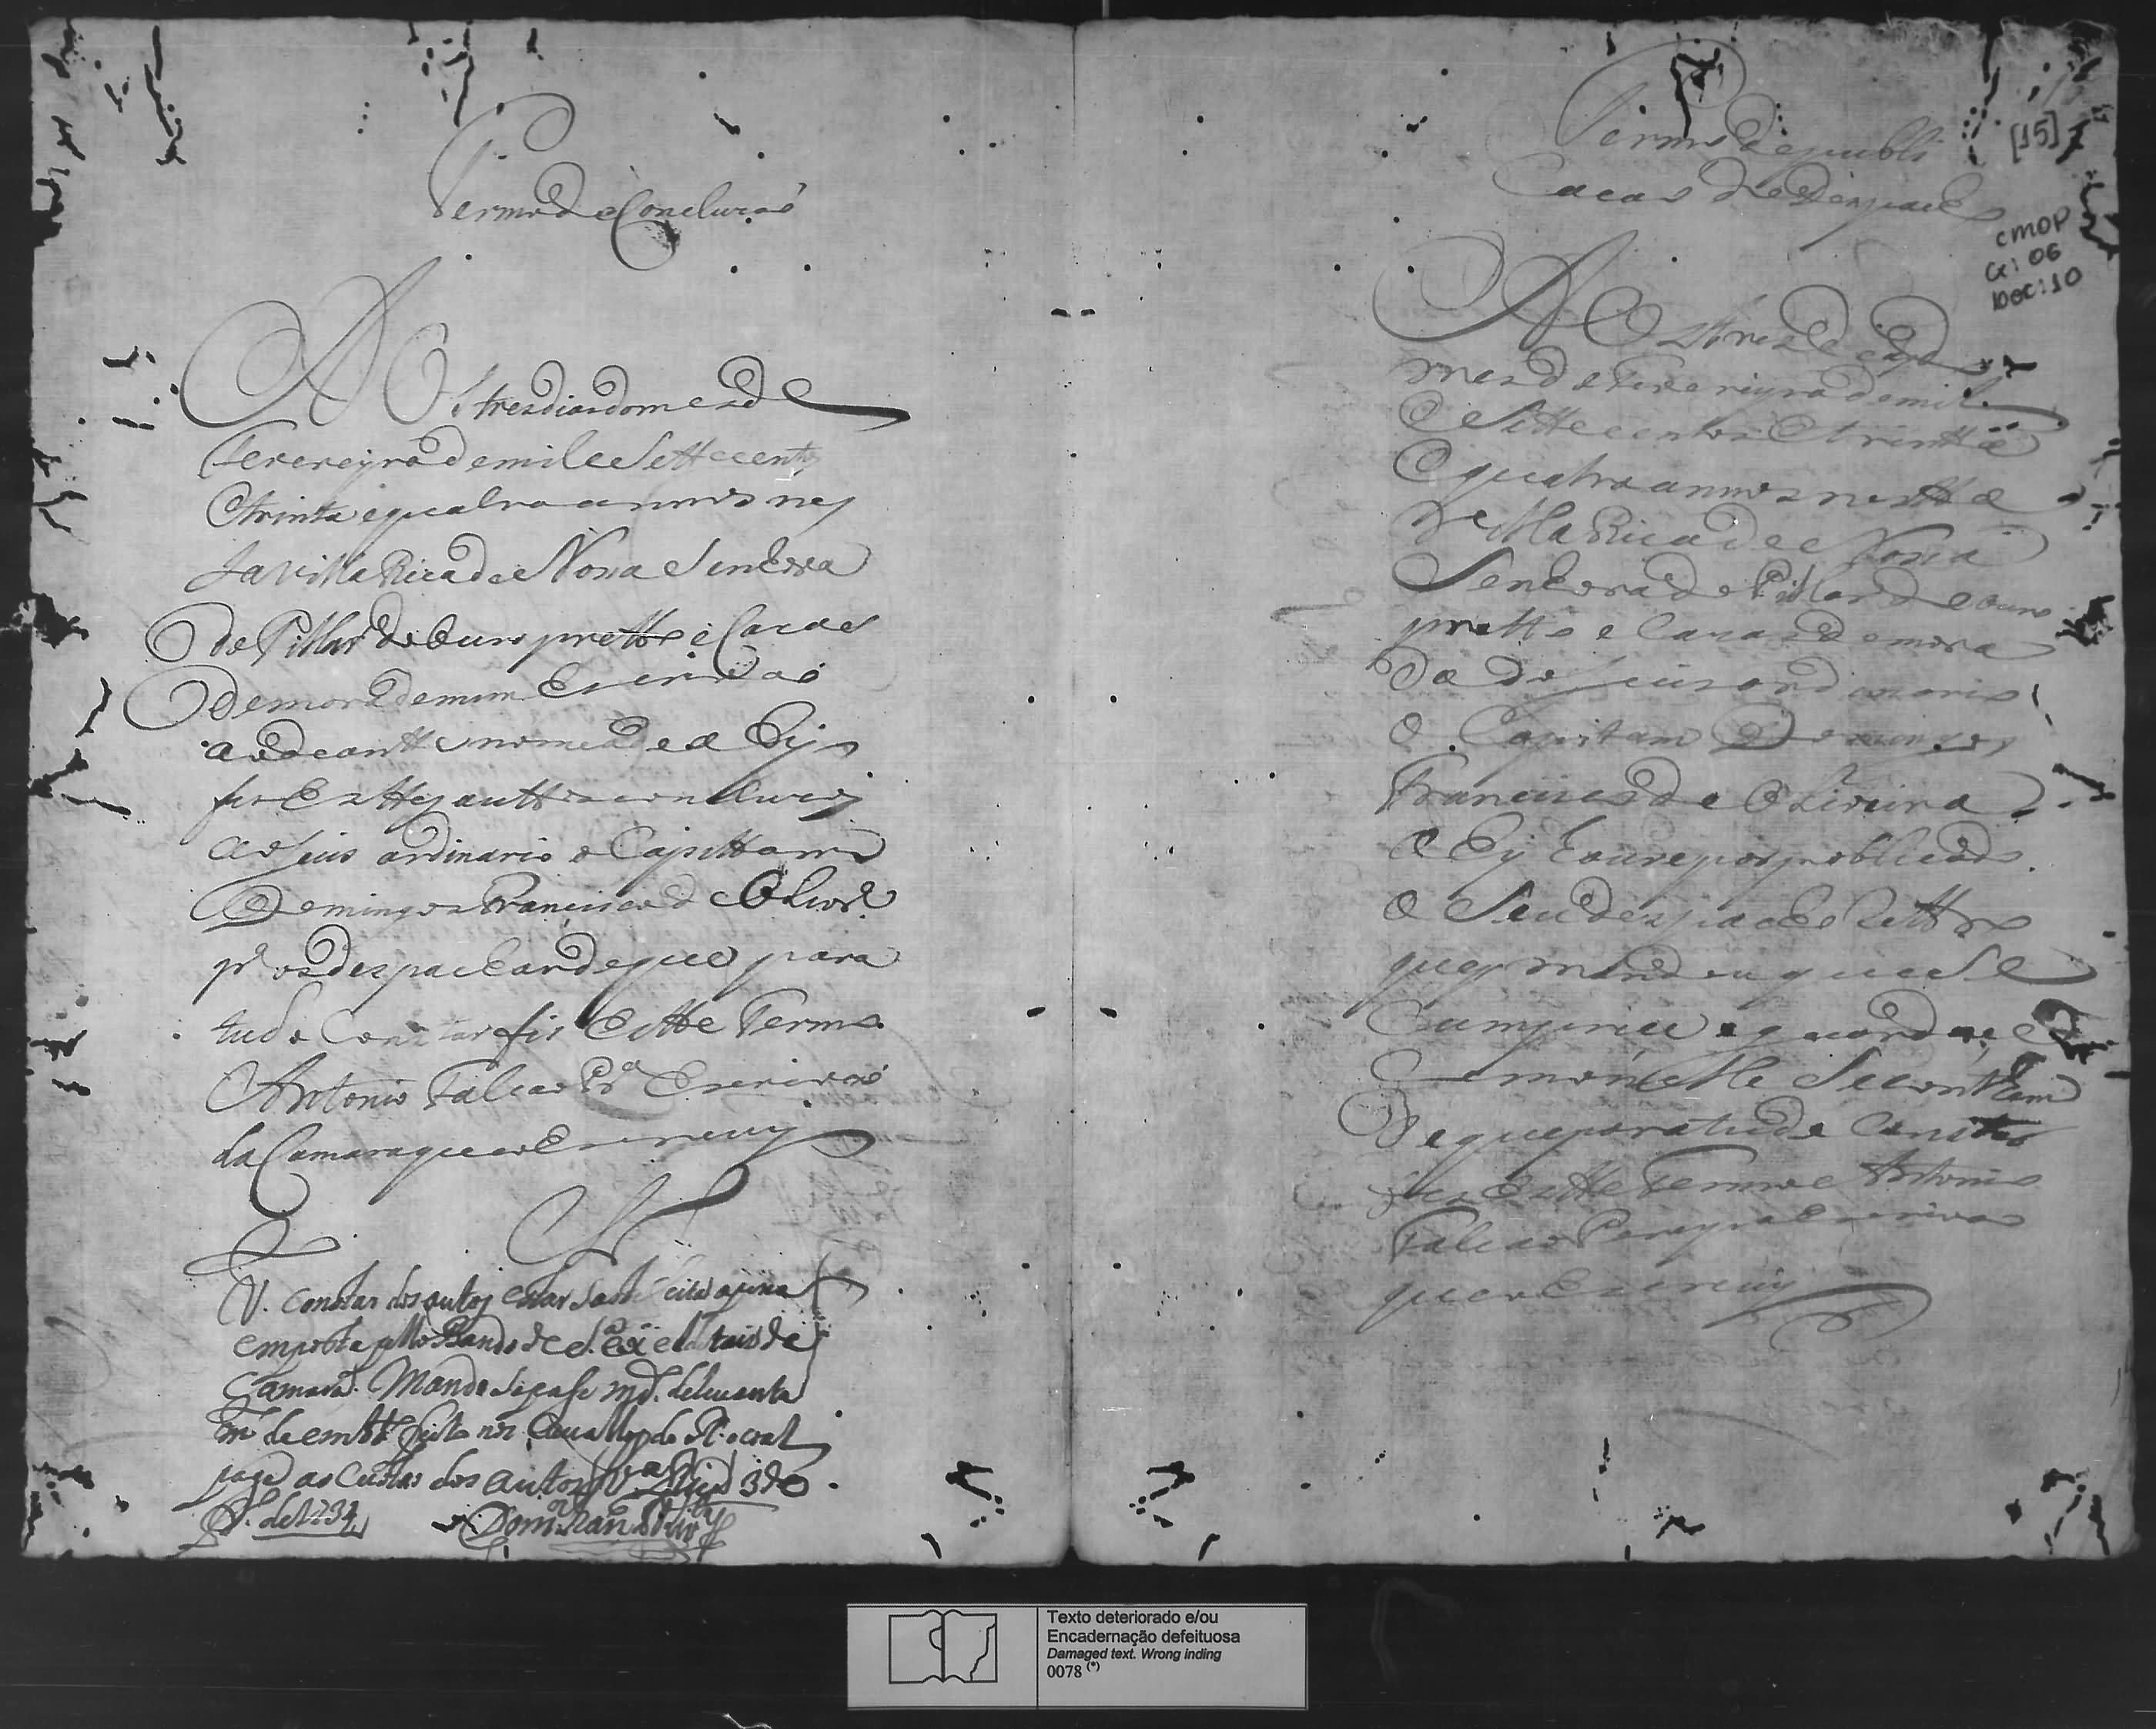 Termo de Concluzaó
AOs tres dias do mes de
Fevereyro de mil e Sette centos
e trinta e quatro annos nes
ta villa Rica de Nosa Senhora
do Pillar do Ouro pretto e Cazas
de morada de mim Escrivaó
ao deante nomeado e ahy
fis Estes auttos concluzos
ao Juis ordinario o Capittam
Domingos Francisco de Olivrª
pª os despachar de que para
tudo Constar fis Este Termo
Antonio Falcaó Prª Escrivaó
da Camara que o Escrevy
V. constar dos autos estar a pena
emposta pello Bando de S. Exª
Camara. Mando
de
page as Custas dos autos Vª Rica 3 de
Fº de 1734
Domºs Franº de Olivrª
Termo de publi
cacaó do Despacho
AOs tres de
mes de Fevereyro de mil
e Sette centos e trinta
e quatro annos nesta
Villa Rica de Nosa
Senhora do Pillar do Ouro
pretto e Cazas de mora
da do Juis ordinario
o Capitam Domingos
Francisco de Oliveira
e hy houve por publicado
o Seu despacho Rettro
que mandou que Se
Cumprice e guardace
Como nelle Se contem
de que para tudo Constar
fis Este Termo e Antonio
Falcaó Pereyra Escrivaó
que o Escrevy
[15]
CMOP
Cx: 06
DOC: 10
Texto deteriorado e/ou
Encadernação defeituosa
Damaged text. Wrong inding
0078 (*)